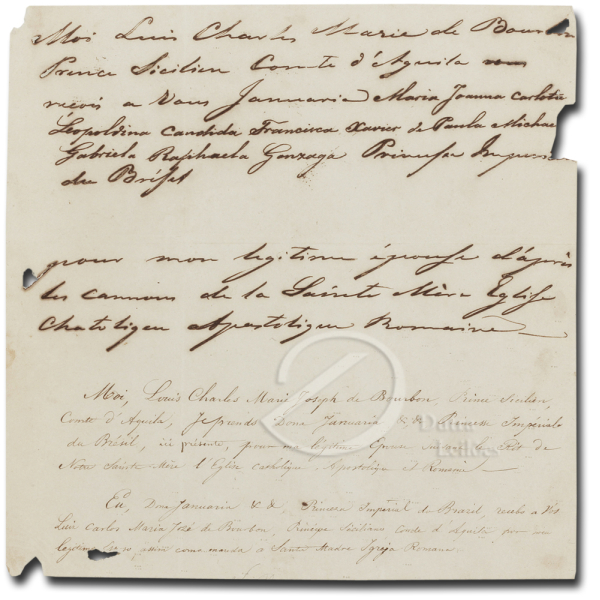 Moi Luis Charles Marie de Bourbon
Prence Sicilien Comte d'Aquila
reçois a Vous Januaria Maria Joanna Carlota
Leopoldina Candida Francisca Xavier de Paula Michae
Gabriela Raphaela Gonzaga Prinsese Imperi
du Brésil
pour mon legitime épouse d'áprès
les cannons de la Sainte Mère Eglise
Chatoliqeu Apostolique Romaine
Moi, Louis Charles Marie Joseph de Bourbon, Prince Sicilien,
Comte d'Aquila, Je prends Dona Januaria & & Princesse Impériale
du Brésil, ici présente, pour ma légitime Epouse de
Notre Sainte Mère l'Eglise Catholique, Apostolique et Romaine
Eu, Dona Januaria & &, Princesa Imperial do Brazil, recebo a Vós
Luiz Carlos Maria José de Bourbon, Principe Siciliano Conde d'Aquila por meu
legitimo, assim como manda a Santa Madre Igreja Romana
Dutra
Leilões